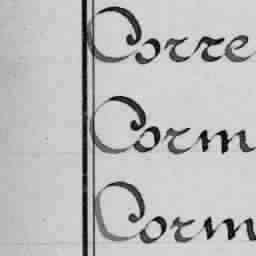 Corre
Corm
Corm